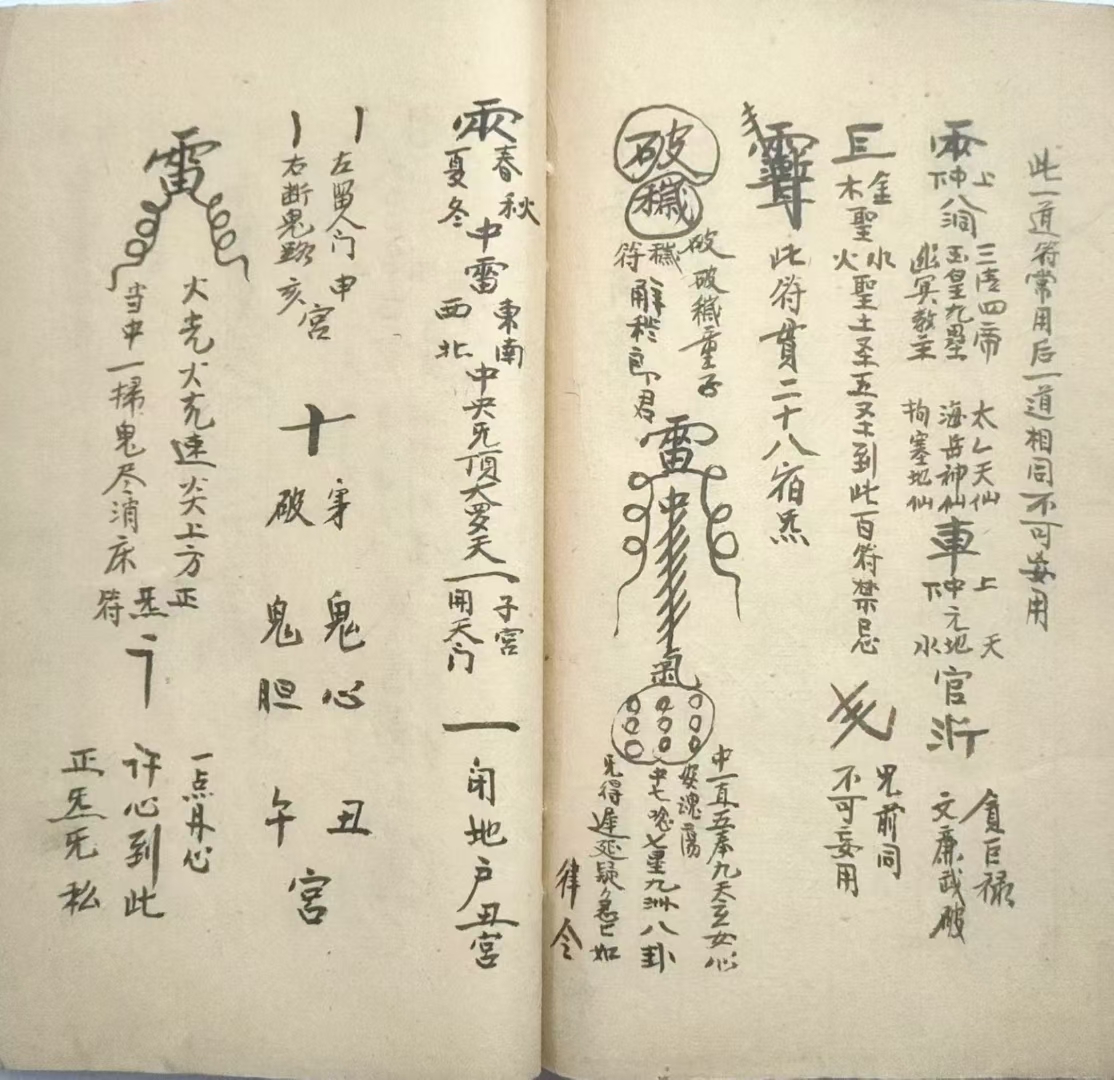 此一道符常用后一道相同不可妄用
雨
上中下八洞
三清四帝
玉皇九壘
幽冥教主
太乙天仙
海岳神仙
拘塞地仙
車
上中下元天地水官
貪巨祿
文廉武破
三
金木聖水火聖土圣五又十到此百符禁忌
咒前同
不可妄用
此符貫二十八宿炁
破穢
破穢符
破穢童子
解秽郎君
雷
中
氣
中一直五奉九天玄女心
安魂
中七
七星九洲八卦
旡得遲延疑急急如
律令
雨
春夏秋冬
中雷
東西南北
中央旡頂大罗天
一開天门子宮
一闭地户丑宮
左留人门申
右断鬼路亥
宮
十
穿鬼心丑
破鬼胆午
宮
雷
火光火光速尖上方
当中一掃鬼尽消床
正炁符
一点丹心
许心到此
正炁旡私